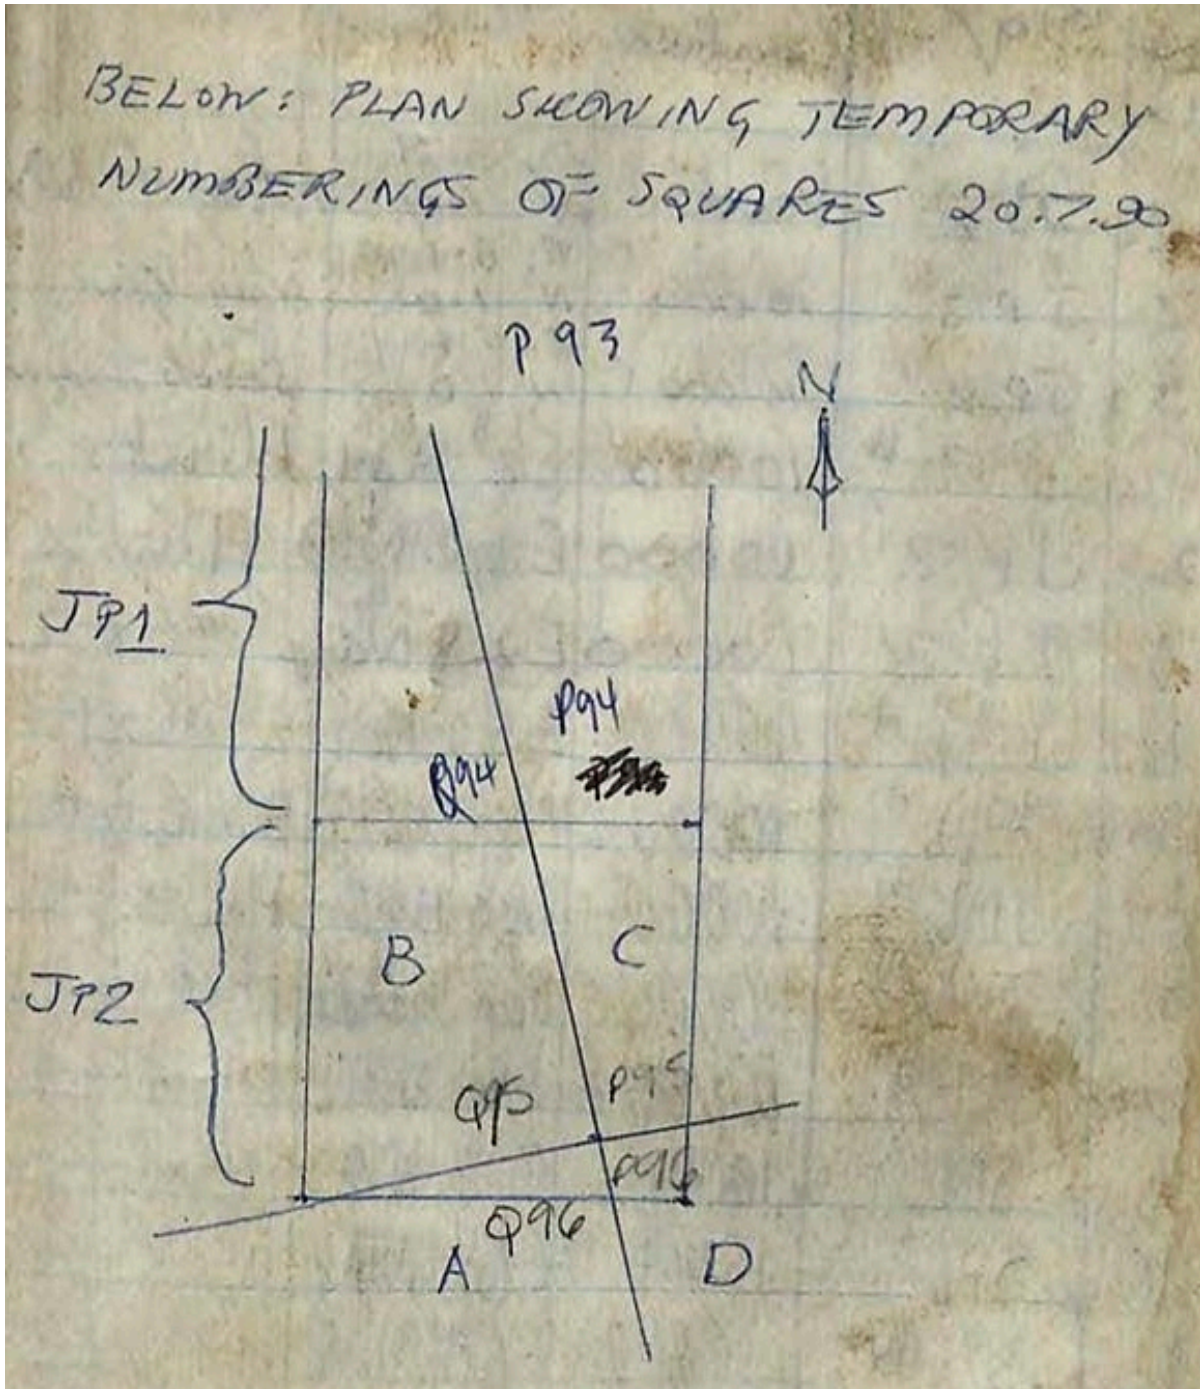 BELOW: PLAN SHOWING TEMPORARY
NUMBERINGS OF SQUARES 20.7.90
P93
N
JP1
P94
Q94
B
C
JP2
Q95
P95
P96
Q96
A
D